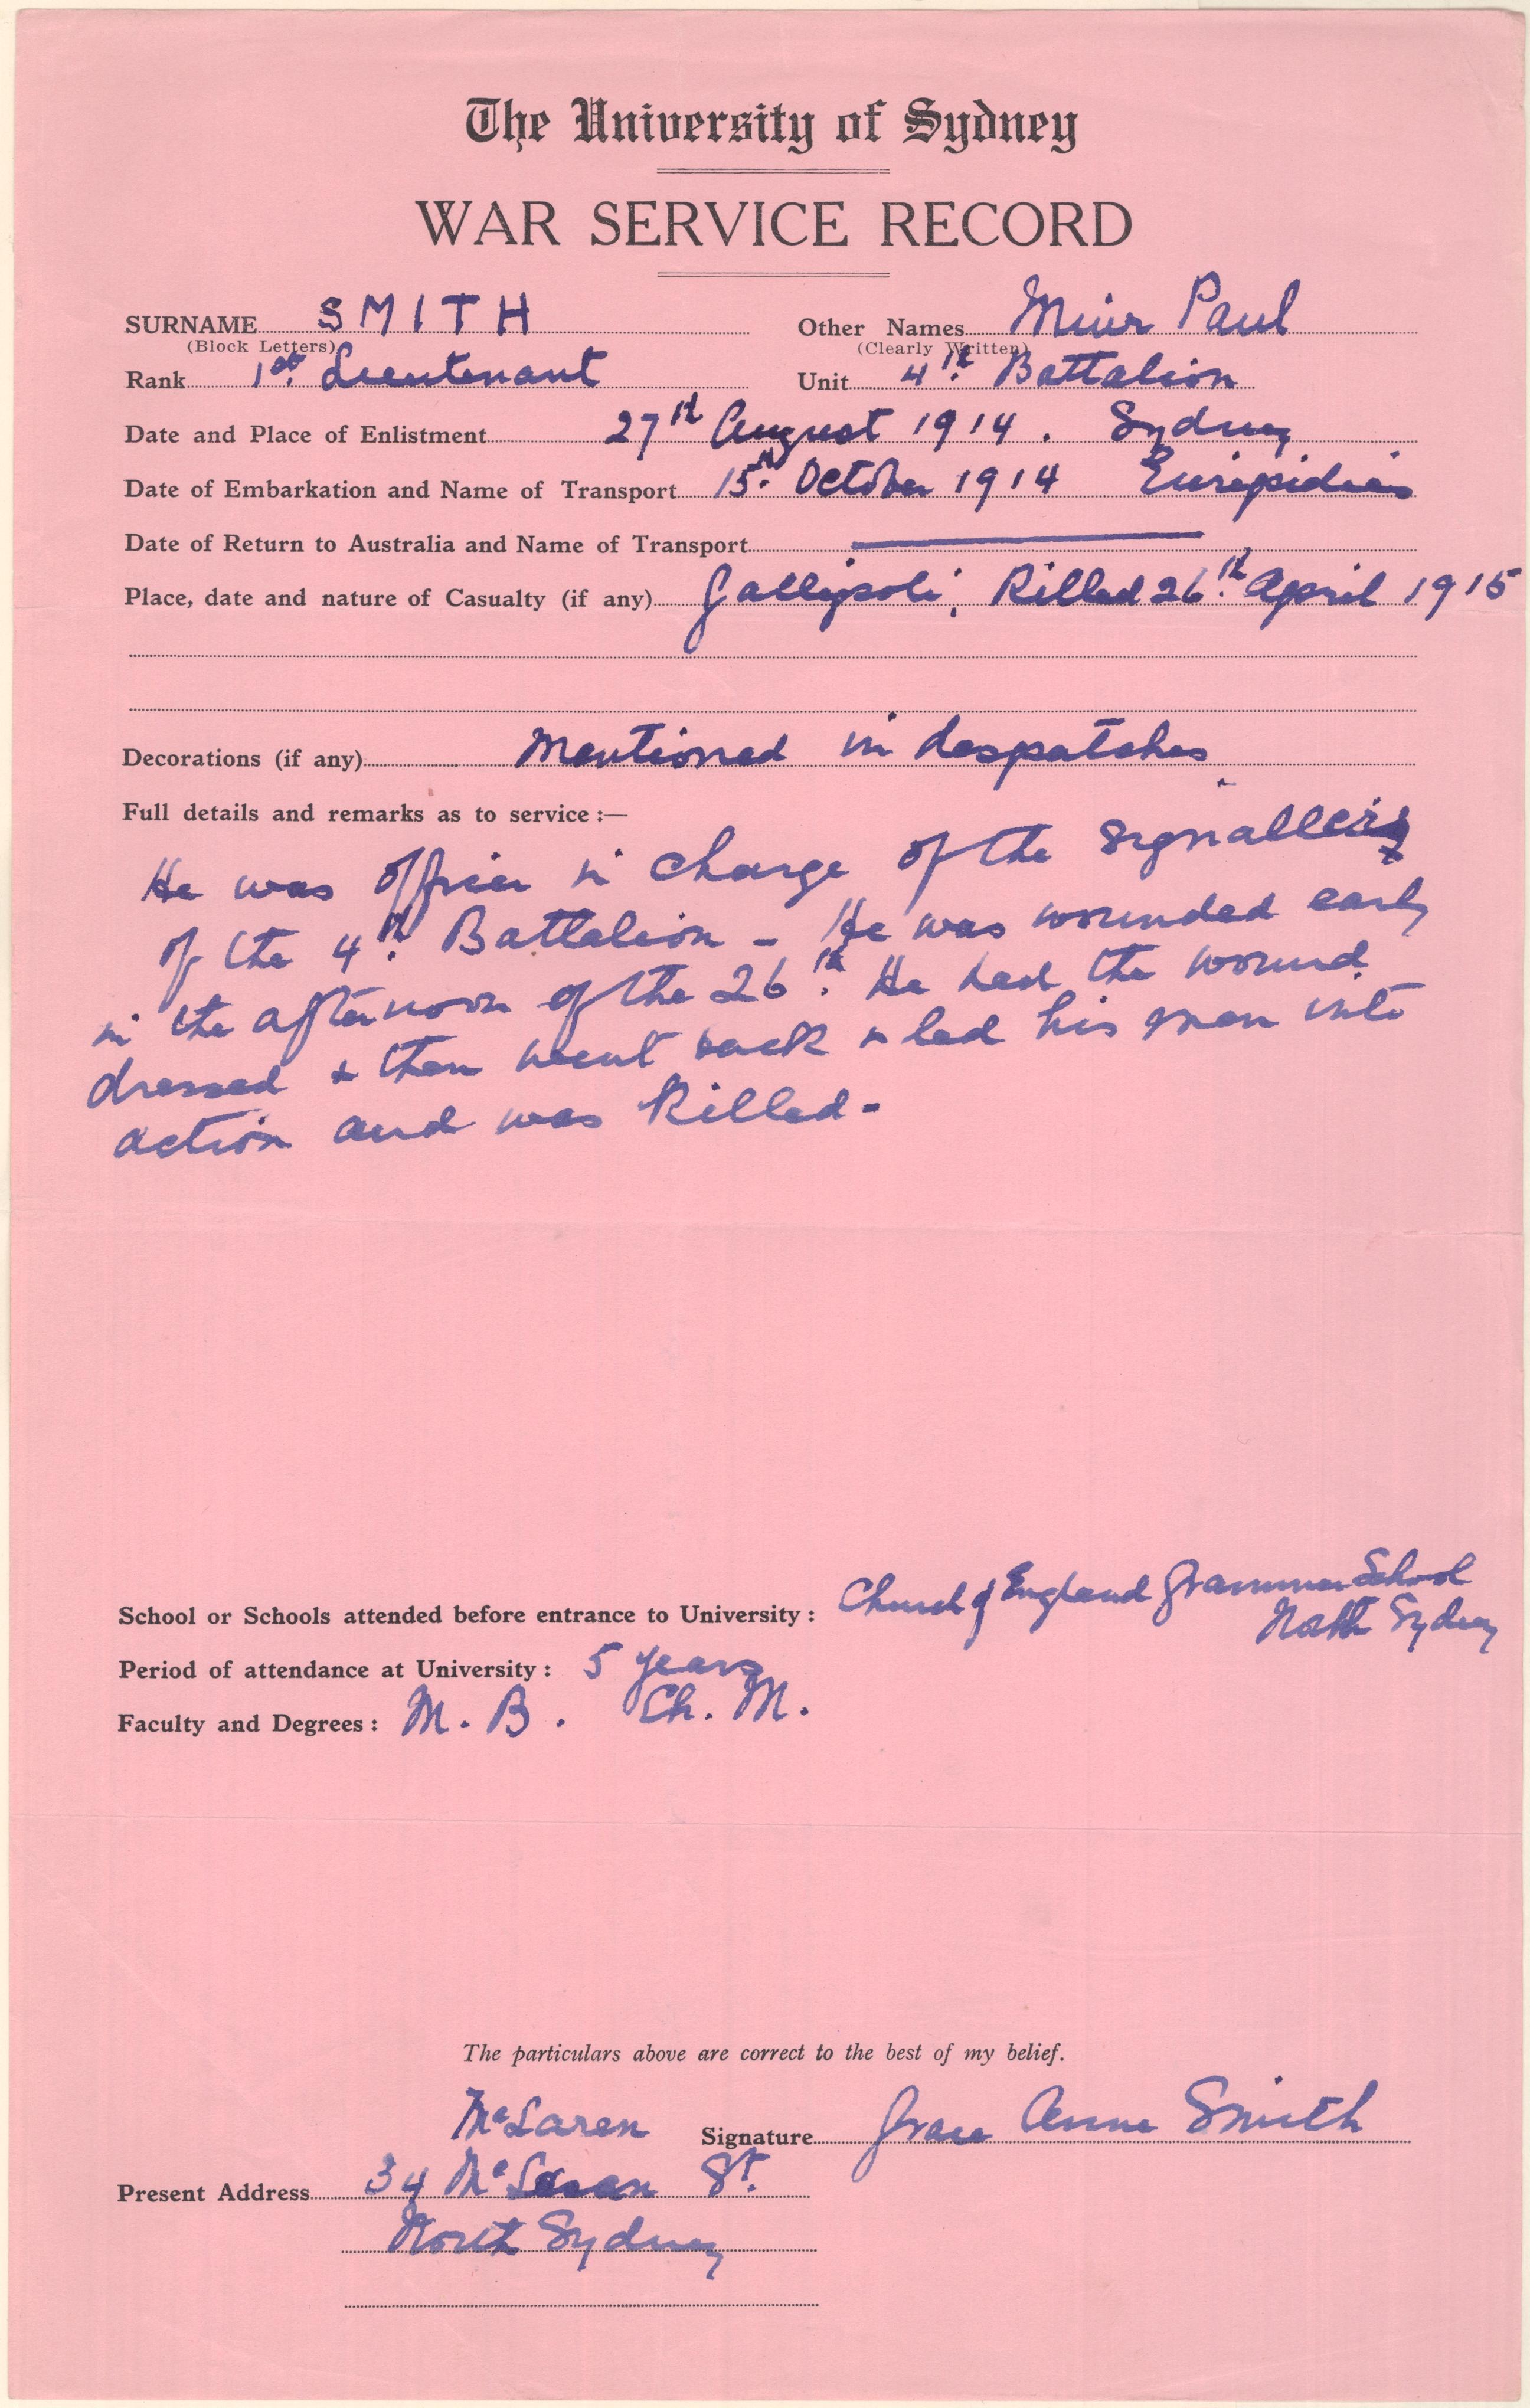 The University of Sydney
WAR SERVICE RECORD
SURNAME SMITH Other Names Muir Paul
(Block Letters) (Clearly Written)
Rank 1st. Lieutenant Unit 4th. Battalion
Date and Place of Enlistment 27th August 1914. Sydney
Date of Embarkation and Name of Transport 15th. October 1914 Euripides
Date of Return to Australia and Name of Transport
Place, date and nature of Casualty (if any) Gallipoli, Killed 26th. April 1915
Decorations (if any) Mentioned in despatches
Full details and remarks as to service :—
He was officer in charge of the signallers
of the 4th. Battalion - He was wounded early
in the afternoon of the 26th. He had the wound
dressed & then went back & led his men into
action and was killed -
School or Schools attended before entrance to University : Church of England Grammar School
North Sydney
Period of attendance at University : 5 years
Faculty and Degrees : M. B. Ch. M.
The particulars above are correct to the best of my belief.
McLaren Signature Grace Anne Smith
Present Address 34 McLaren St.
North Sydney